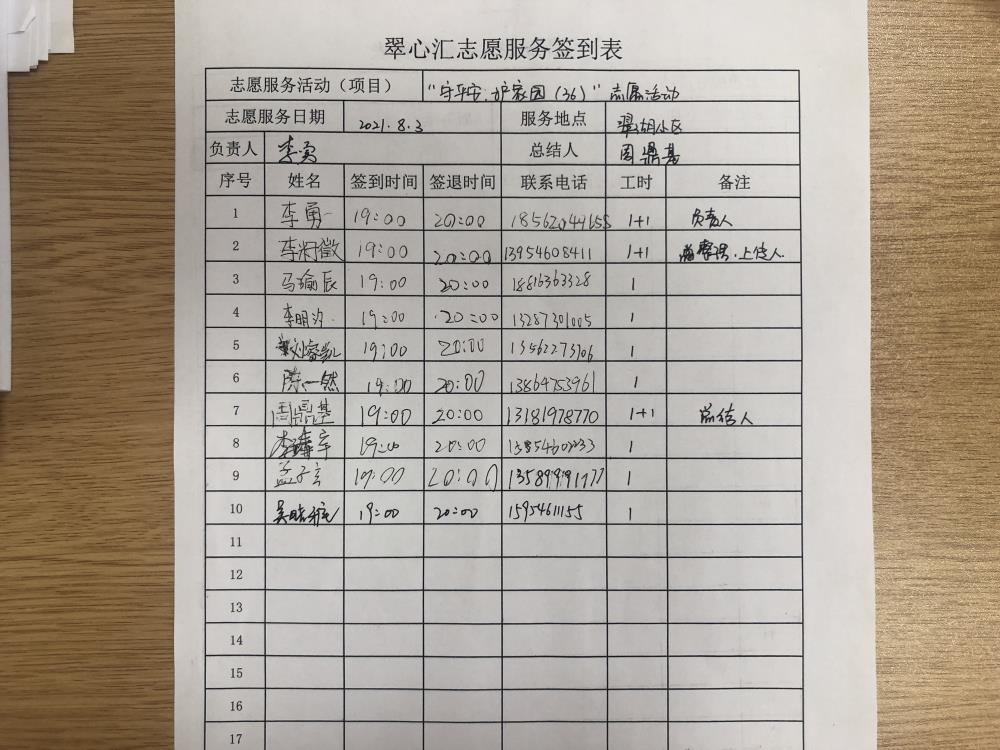 翠心汇志愿服务签到表
志愿服务活动（项目） “守平安，护家园（36）”志愿活动
志愿服务日期 2021.8.3 服务地点 翠湖小区
负责人 李勇 总结人 周鼎基
序号 姓名 签到时间 签退时间 联系电话 工时 备注
1 李勇 19:00 20:00 18562049658 1+1 负责人
2 19:00 20:00 13954608411 1+1 上传人
3 马瑜辰 19:00 20:00 18816363328 1
4 李明汐 19:00 20:00 13287301005 1
5 刘睿凯 19:00 20:00 13562273706 1
6 陈一然 19:00 20:00 13864753961 1
7 周鼎基 19:00 20:00 13181978770 1+1 总结人
8 19:00 20:00 1
9 孟子玄 19:00 20:00 1
10 19:00 20:00 15954611155 1
11
12
13
14
15
16
17